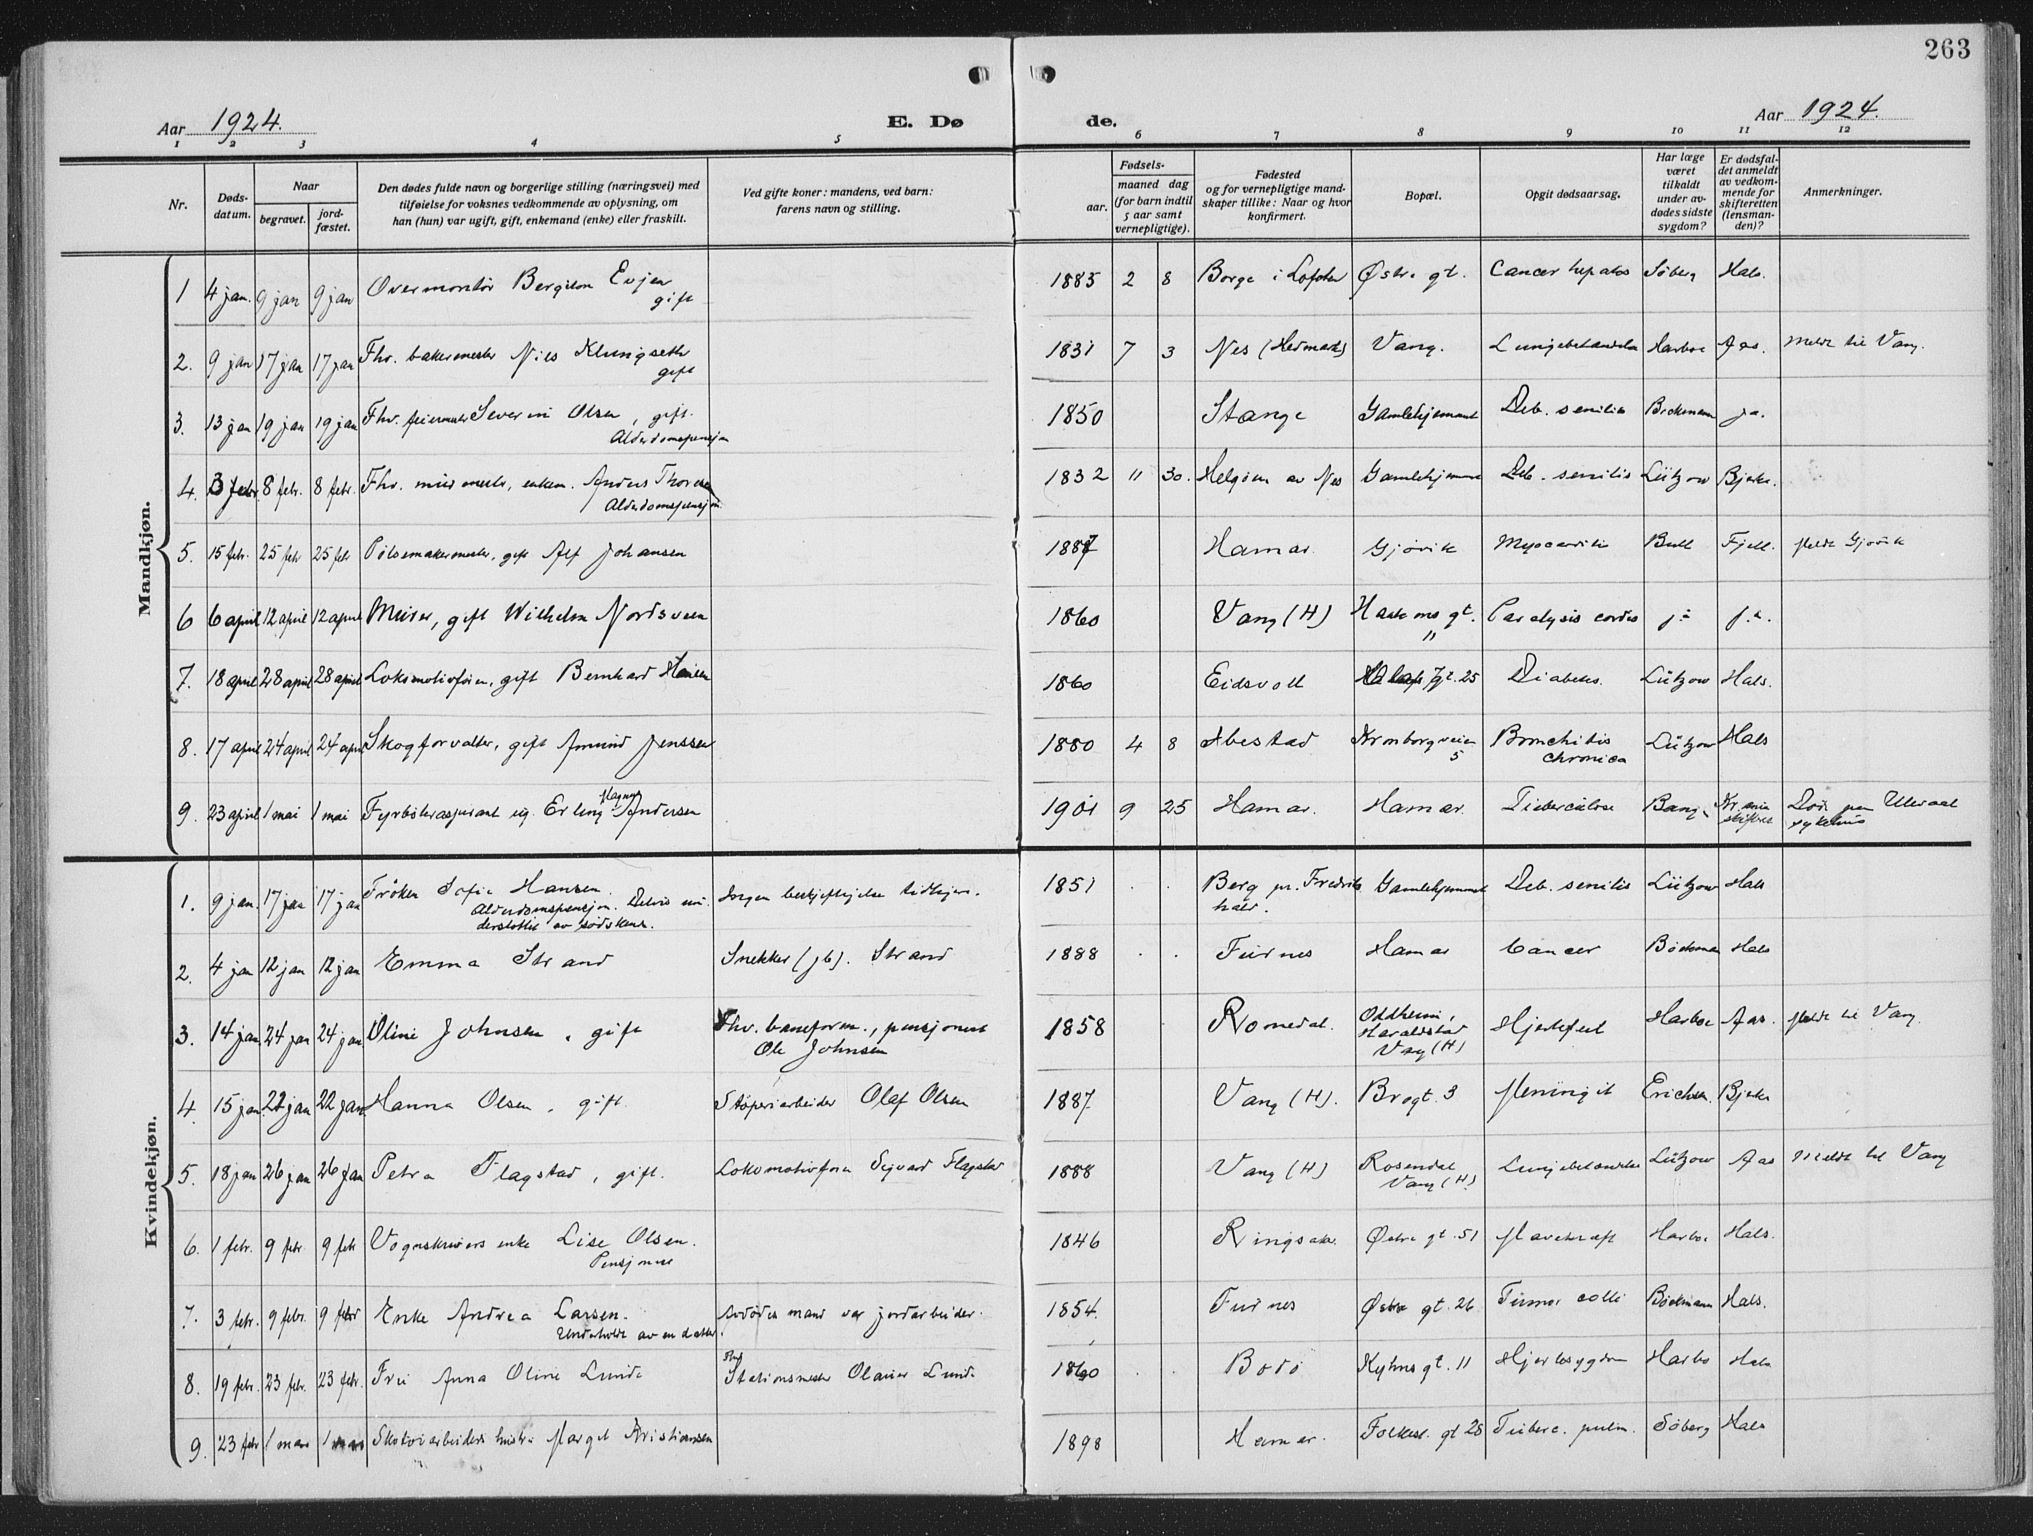 263
Aar 1924.
E. Dø
de.
Aar 1924.
1 2 3 4 5 6 7 8 9 10 11 12
Nr.
Døds-
datum.
Naar
begravet.
jord-
fæstet.
Den dødes fulde navn og borgerlige stilling (næringsvei) med
tilføielse for voksnes vedkommende av oplysning, om
han (hun) var ugift, gift, enkemand (enke) eller fraskilt.
Ved gifte koner: mandens, ved barn:
farens navn og stilling.
Fødsels-
aar.
maaned dag
(for barn indtil
5 aar samt
vernepligtige).
Fødested
og for vernepligtige mand-
skaper tillike: Naar og hvor
konfirmert.
Bopæl.
Opgit dødsaarsag.
Har læge
været
tilkaldt
under av-
dødes sidste
sygdom?
Er dødsfal-
det anmeldt
av vedkom-
mende for
skifteretten
(lensman-
den)?
Anmerkninger.
Mandkjøn.
1 4 jan. 9 jan 9 jan Overmontør Evjen 1883 2 8 Borge i Lofoten Østre gt. Cancer hepatis Søberg Hals.
gift
2. 9 jan 17 jan 17 jan Fhv. bakermester Nils Klungseth 1831 7 3 Nes (Hedmark) Vang. Lungebetændelse Harboe Aas. Meldt til Vang.
gift
3. 13 jan 19 jan 19 jan Fhv. feiermester Severin Olsen, gift. 1850 Stange Gamlehjemmet Deb. senilis Bøckmann ja.
Alderdomspensjon
4. 3 febr. 8 febr. 8 febr. Fhv. murmester, enkem. Anders Thoresen 1832 11 30. Helgøen av Nes Gamlehjemmet Deb. senilis Lützow Bjerke.
Alderdomspensjon
5. 15 febr. 25 febr 25 febr Pølsemakermester, gift Alf Johansen 1887 Hamar. Gjøvik Myocarditis Bull Fjell. Meldt Gjøvik
6 6 april 12 april 12 april Murer, gift Wilhelm Nordsveen 1860 Vang (H) Haakons gt. Paralysis cordis ja ja.
11
7. 18 april 28 april 28 april Lokomotivfører, gift Bernhard Hansen 1860 Eidsvoll gt. 25 Diabetes. Lützow Hals.
8. 17 april 24 april 24 april Skogforvalter, gift Amund Jenssen 1880 4 8 Ibestad Kronborgveien Bronchitis Lützow Hals
5 chronica
Magnus
9. 23 april 1 mai 1 mai Fyrbøteraspirant ug. Erling Andersen 1901 9 25 Hamar. Hamar. Tuberculose Bang. Kr.ania Død paa Ulleraal
skifteret sykehus
Kvindekjøn.
1. 9 jan. 17 jan 17 jan Frøken Sofie Hansen. Ingen beskjeftigelse tidligere. 1851 Berg pr. Fredriks Gamlehjemmet Deb. senilis Lützow Hals
Alderdomspensjon. Delvis un- hald.
derstøttet av sødskend.
2. 4 jan 12 jan 12 jan Emma Strand Snekker (jb). Strand 1888 Furnes Hamar Cancer Bøckman Hals
3. 14 jan 24 jan 24 jan Oline Johnsen, gift Fhv. baneform., pensjonert 1858 Romedal. Oddheim, Hjertefeil Harboe Aas. Meldt til Vang.
Ole Johnsen Haraldstad
Vang (H)
4. 15 jan 22 jan 22 jan Hanna Olsen, gift. Støperiarbeider Olaf Olsen 1887 Vang (H). Brogt. 3 Meningit Erichsen. Bjerke
5. 18 jan 26 jan 26 jan Petra Flagstad, gift. Lokomotivfører Sigvard Flagstad 1888 Vang (H) Rosendal Lungebetændelse Lützow Aas Meldt til Vang
Vang (H)
6. 1 febr. 9 febr. 9 febr Vognskrivers enke Lise Olsen. 1846 Ringsaker. Østre gt. 51 Mavekræft Harboe Hals.
Pensjonist
7. 3 febr. 9 febr. 9 febr Enke Andrea Larsen. Avdødes mand var jordarbeider. 1854. Furnes Østre gt. 26 Tumor colli Bøckmann Hals.
Underholdt av en datter
Fhv
8. 19 febr. 23 febr. 23 febr. Fru Anna Oline Lunde Stationsmester Olaus Lunde 1860 Bodø Kyhns gt. 11 Hjertesygdom Harbo Hals
9. 23 febr 1 mars 1 mars Skotøiarbeiders hustru Margit Kristiansen 1898 Hamar. Folkest. gt 28 Tuberc. pulm. Søberg Hals